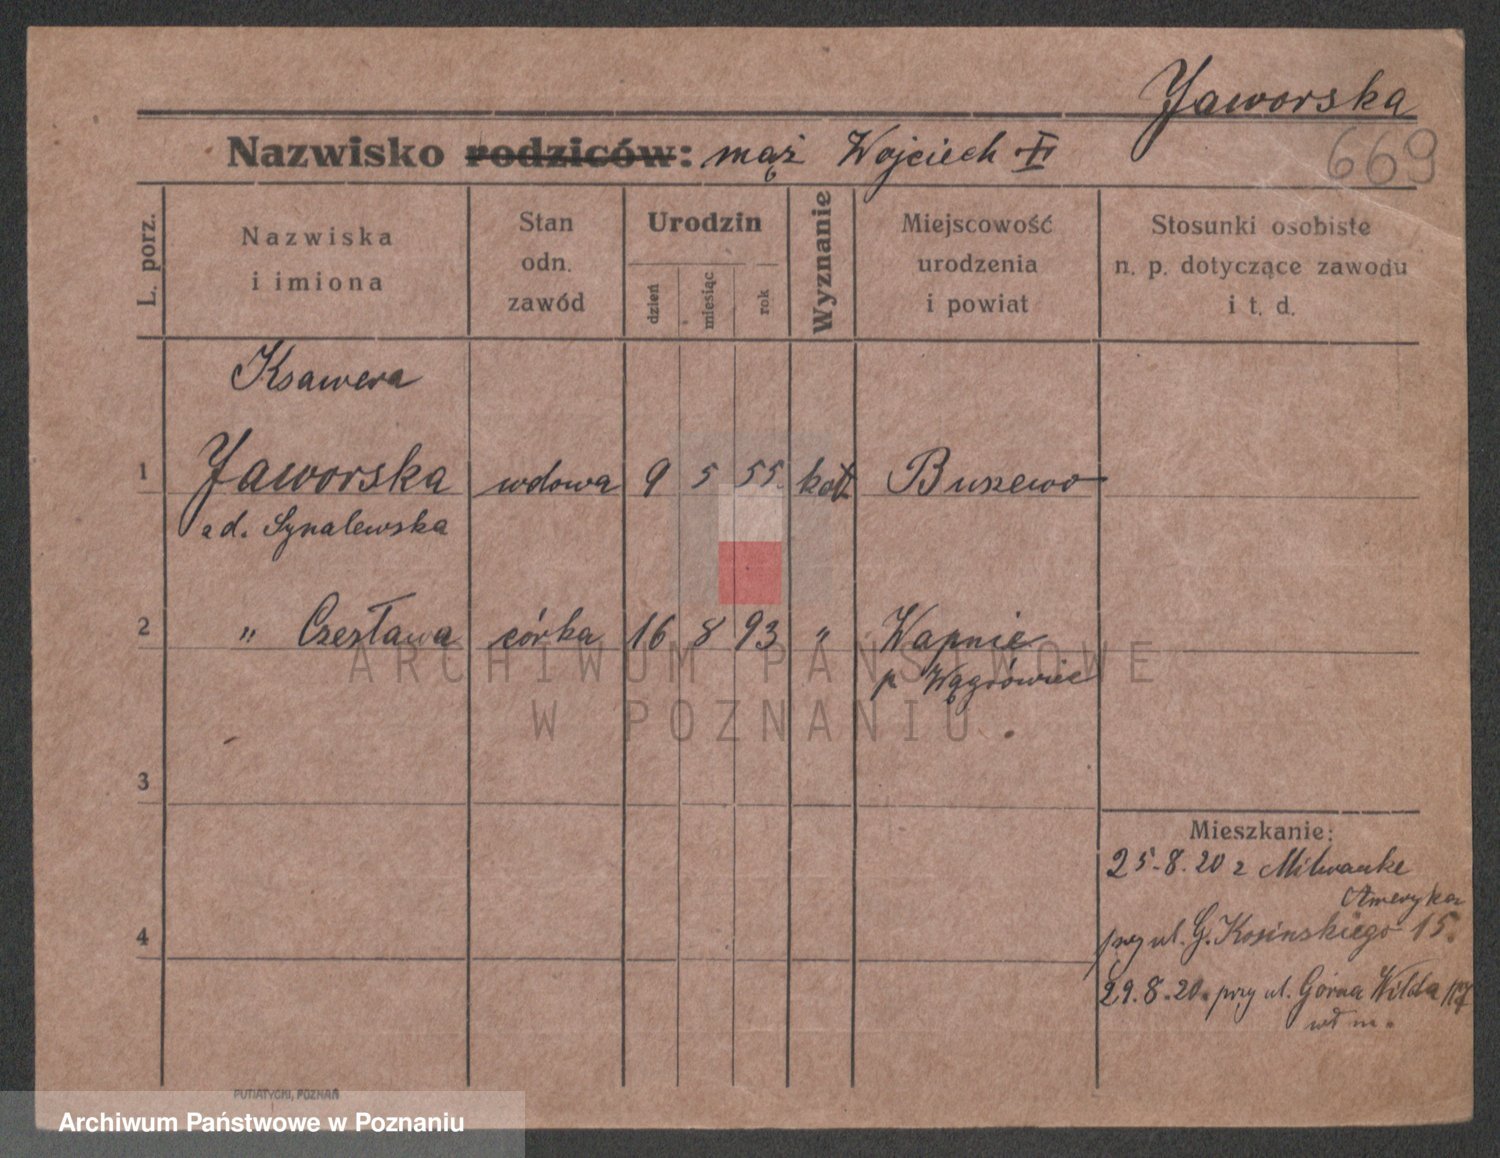 Jaworska
669
Nazwisko rodziców: mąż Wojciech
L. porz.
Nazwiska i imiona
Stan odn. zawód
Urodzin
dzień
miesiąc
rok
Wyznanie
Miejscowość urodzenia i powiat
Stosunki osobiste n. p. dotyczące zawodu i t. d.
Ksawera
1 Jaworska wdowa 9 5 55. kat Buszewo
z d. Synalewska
2 " Czesława córka 16 8 93 " Wapnie
p Wągrówiec
3
4
Mieszkanie:
25-8.20 z Milwauke
Ameryka
przy ul. G. Kosinskiego 15.
29.8.20. przy ul. Górna Wilda
ARCHIWUM PAŃSTWOWE
W POZNANIU
PUTIATYCKI, POZNAŃ
Archiwum Państwowe w Poznaniu